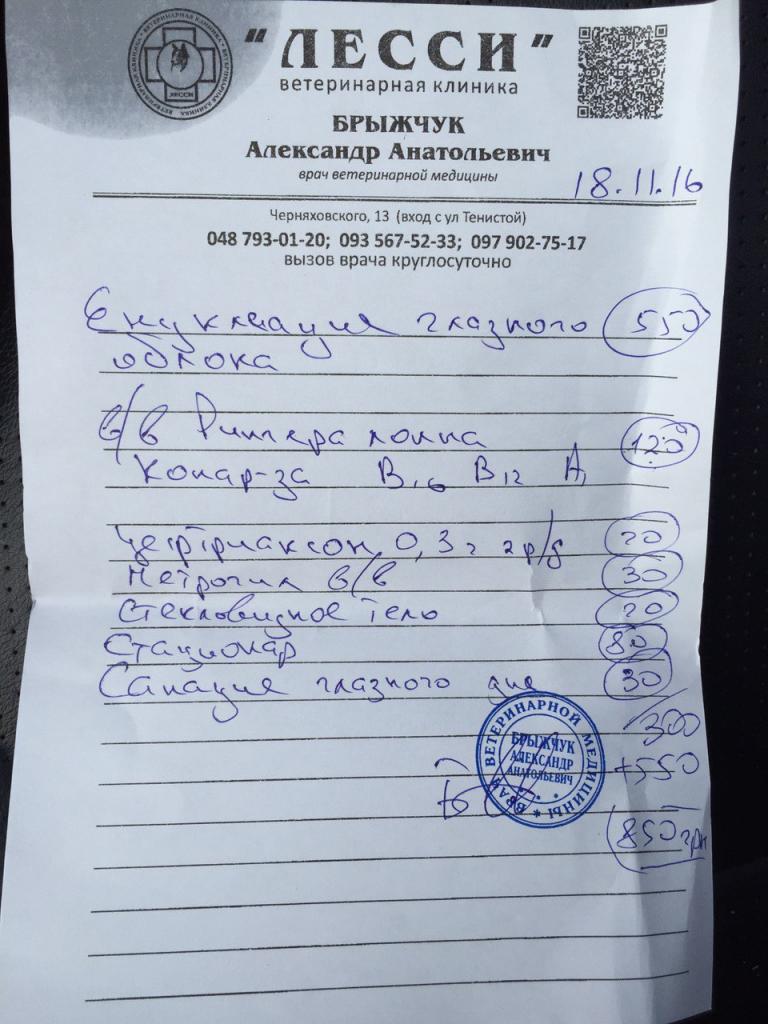 "ЛЕССИ"
ветеринарная клиника
БРЫЖЧУК
Александр Анатольевич
врач ветеринарной медицины
18.11.16
Черняховского, 13 (вход с ул Тенистой)
048 793-01-20; 093 567-52-33; 097 902-75-17
вызов врача круглосуточно
Енуклеация глазного 550
яблока
в/в Рингера 120
B12
Цефтриаксон 0,3г 2р/д 20
Метрогил в/в 30
Стекловидное тело 20
Стационар 80
Санация глазного дна 30
300
+550
850грн
ВРАЧ ВЕТЕРИНАРНОЙ МЕДИЦИНЫ
БРЫЖЧУК
АЛЕКСАНДР
АНАТОЛЬЕВИЧ
ВЕТЕРИНАРНАЯ КЛИНИКА
ЛЕССИ